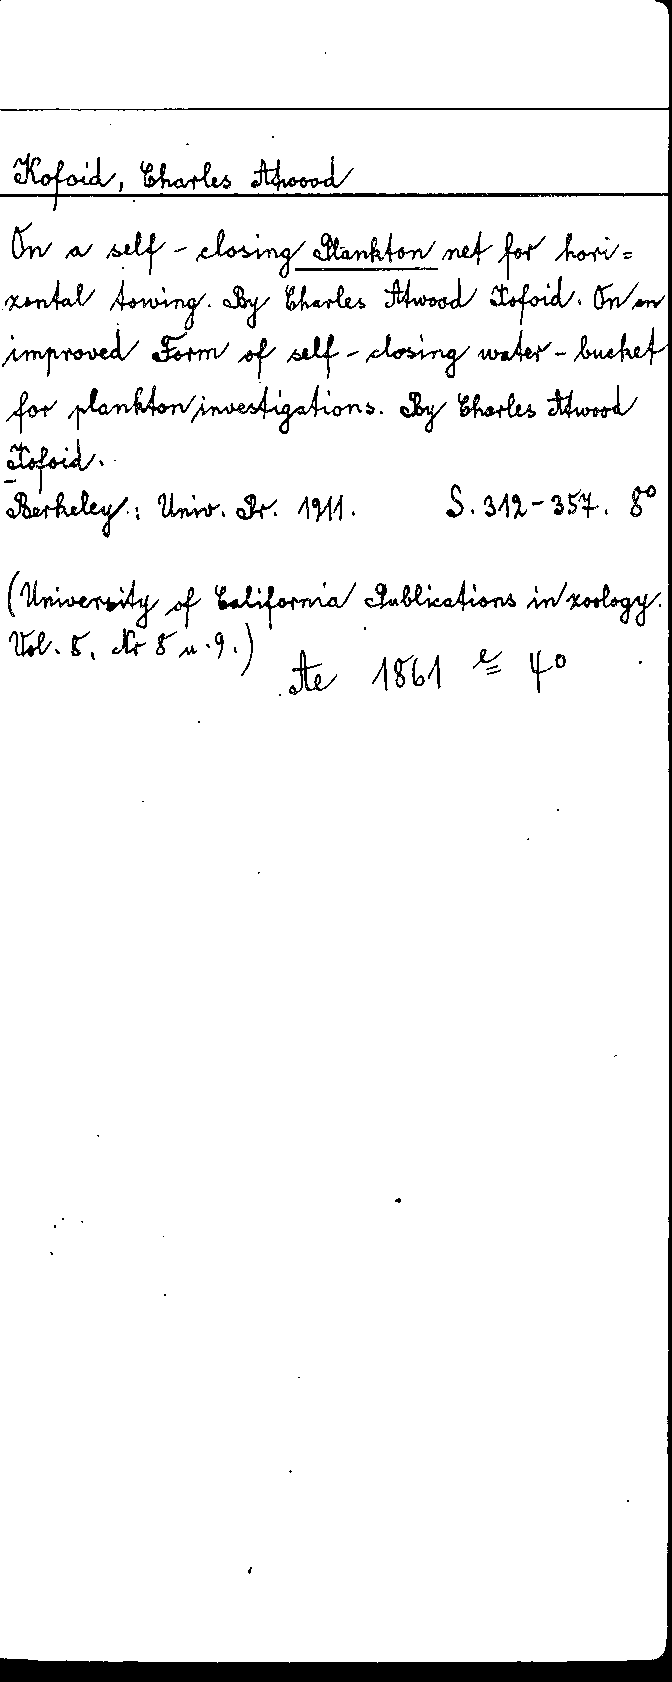 Kofoid, Charles Atwood
On a self-closing Plankton net for hori=
zontal towing. By Charles Atwood Kofoid. On an
improved Form of self-closing water-bucket
for plankton investigations. By Charles Atwood
Kofoid.
Berkeley: Univ. Pr. 1911. S. 312-357. 8°
(University of California Publications in zoology.
Vol. 8, Nr 8 u. 9.)
Ae 1861 e 4°